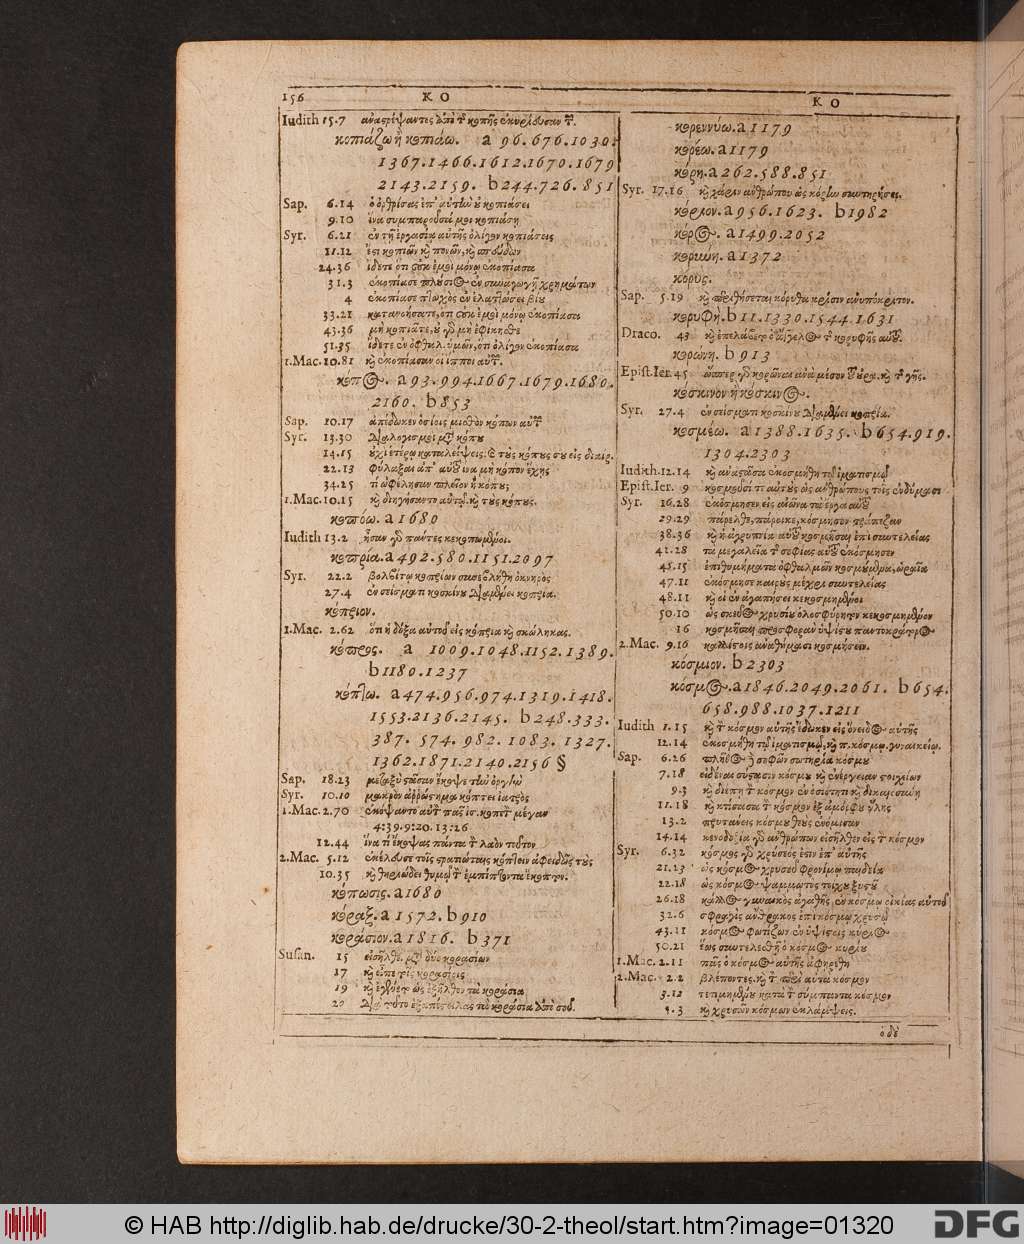 156
ΚΟ
Iudith 15.7
κοπιάζω ἢ κοπιάω. a 96.676.1030.
1367.1466.1612.1670.1679
2143.2159. b244.726.851
Sap. 6.14 κοπιάσει
9.10 ἵνα συμπαροῦσά μοι κοπιάσῃ
Syr. 6.21 ἐν τῇ ἐργασίᾳ αὐτῆς ὀλίγον κοπιάσεις
11.12 ἔστι κοπιῶν καὶ πονῶν, καὶ σπεύδων
24.36 ἴδετε ὅτι οὐκ ἐμοὶ μόνῳ ἐκοπίασα
31.3 ἐκοπίασε πλούσιος ἐν συναγωγῇ χρημάτων
4 ἐκοπίασε πτωχὸς ἐν ἐλαττώσει βίου
33.21 κατανοήσατε, ὅτι οὐκ ἐμοὶ μόνῳ ἐκοπίασα
43.36 μὴ κοπιᾶτε, οὐ γὰρ μὴ ἐφίκησθε
51.35 ὅτι ὀλίγον ἐκοπίασα
1.Mac. 10.81 καὶ ἐκοπίασαν οἱ ἵπποι αὐτῶν.
κόπος. a93.994.1667.1679.1680.
2160. b853
Sap. 10.17 ἀπέδωκεν ὁσίοις μισθὸν κόπων αὐτῶν
Syr. 13.30 διαλογισμοὶ μετὰ κόπου
14.15 οὐχὶ ἑτέρῳ καταλείψεις
22.13 φύλαξαι ἀπ' αὐτοῦ ἵνα μὴ κόπον ἔχῃς
34.25
1.Mac. 10.15 καὶ διηγήσαντο αὐτῷ. καὶ τοὺς κόπους.
κοπόω. a1680
Iudith 13.2 ἦσαν γὰρ πάντες κεκοπωμένοι.
κοπρία. a492.580.1151.2097
Syr. 22.2 βολβίτῳ κοπρίων συνεβλήθη ὀκνηρὸς
27.4 ἐν σείσματι κοσκίνου διαμένει κοπρία.
κόπριον.
1.Mac. 2.62 ὅτι ἡ δόξα αὐτοῦ εἰς κόπρια καὶ σκώληκας.
κόπρος. a 1009.1048.1152.1389.
b1180.1237
κόπτω. a474.956.974.1319.1418.
1553.2136.2145. b248.333.
387. 574. 982. 1083. 1327.
1362.1871.2140.2156 §
Sap. 18.23 μεταξὺ στὰς ἀνέκοψε τὴν ὀργὴν
Syr. 10.10 μακρὸν ἀρρώστημα κόπτει ἰατρὸς
1.Mac. 2.70
4:39.9:20.13:26
12.44 ἵνα τί ἔκοψας πάντα τὸν λαὸν τοῦτον
2.Mac. 5.12 ἐκέλευσε τοῖς στρατιώταις κόπτειν ἀφειδῶς τοὺς
10.35 καὶ θηριώδει θυμῷ τὸν ἐμπίπτοντα ἔκοπτον.
κόπωσις. a1680
κόραξ. a1572. b910
κοράσιον. a1816. b371
Susan. 15 εἰσῆλθε. μετὰ δύο κορασίων
17 καὶ εἶπε τοῖς κορασίοις
19 καὶ ἐγένετο ὡς ἐξῆλθον τὰ κοράσια
20 διὰ τοῦτο ἐξαπέστειλας τὰ κοράσια ἀπὸ σοῦ.
ΚΟ
κορεννύω. a1179
κορέω. a1179
κόρη. a262.588.851
Syr. 17.16 καὶ χάριν ἀνθρώπου ὡς κόρην συντηρήσει.
κόριον. a956.1623. b1982
κόρος. a1499.2052
κορύνη. a1372
κόρυς.
Sap. 5.19 καὶ περιθήσεται κόρυθα κρίσιν ἀνυπόκριτον.
κορυφή. b11.1330.1544.1631
Draco. 43 καὶ ἐπελάβετο ὁ ἄγγελος τῆς κορυφῆς αὐτοῦ.
κορώνη. b913
Epist.Ier. 45 ὥσπερ γὰρ κορῶναι ἀνὰ μέσον τοῦ οὐρα. καὶ τῆς γῆς.
κόσκινον ἢ κόσκινος.
Syr. 27.4 ἐν σείσματι κοσκίνου διαμένει κοπρία.
κοσμέω. a1388.1635. b654.919.
1304.2303
Iudith. 12.14 καὶ ἀναστᾶσα ἐκοσμήθη τῷ ἱματισμῷ
Epist.Ier. 9 κοσμοῦσί τι αὐτοὺς ὡς ἀνθρώπους τοῖς ἐνδύμασι
Syr. 16.28 ἐκόσμησεν εἰς αἰῶνα τὰ ἔργα αὐτοῦ
29.29 πάρελθε, πάροικε, κόσμησον τράπεζαν
38.36 καὶ ἡ ἀγρυπνία αὐτοῦ κοσμῆσαι ἐπὶ συντελείας
42.28 τὰ μεγαλεῖα τῆς σοφίας αὐτοῦ ἐκόσμησεν
45.15 ἐπιθυμήματα ὀφθαλμῶν κοσμούμενα, ὡραῖα
47.11 ἐκόσμησε καιροὺς μέχρι συντελείας
48.11 καὶ οἱ ἐν ἀγαπήσει κεκοσμημένοι
50.10 ὡς σκεῦος χρυσίου ὁλοσφύρητον κεκοσμημένον
16 κοσμῆσαι προσφορὰν ὑψίστου παντοκράτορος
2.Mac. 9.16 καλλίστοις ἀναθήμασι κοσμήσειν.
κόσμιον. b2303
κόσμος. a1846.2049.2061. b654.
658.988.1037.1211
Iudith 1.15 καὶ τὸν κόσμον αὐτῆς ἔδωκεν εἰς ὄνειδος αὐτῆς
12.14 ἐκοσμήθη τῷ ἱματισμῷ, καὶ π. κόσμῳ. γυναικείῳ.
Sap. 6.26 πλῆθος δὲ σοφῶν σωτηρία κόσμου
7.18 εἰδέναι σύστασιν κόσμου καὶ ἐνέργειαν στοιχείων
9.3 καὶ διέπῃ τὸν κόσμον ἐν ὁσιότητι καὶ δικαιοσύνῃ
11.18 καὶ κτίσασα τὸν κόσμον ἐξ ἀμόρφου ὕλης
13.2 πρυτάνεις κόσμου θεοὺς ἐνόμισαν
14.14 κενοδοξία γὰρ ἀνθρώπων εἰσῆλθεν εἰς τὸν κόσμον
Syr. 6.32 κόσμος γὰρ χρύσεός ἐστιν ἐπ' αὐτῆς
21.23 ὡς κόσμος χρυσοῦς φρονίμῳ παιδεία
22.18 ὡς κόσμος ψάμμωτος τοίχου ξυστοῦ
26.18 κάλλος γυναικὸς ἀγαθῆς ἐν κόσμῳ οἰκίας αὐτοῦ
32.6 σφραγὶς ἄνθρακος ἐπὶ κόσμῳ χρυσῷ
43.11 κόσμος φωτίζων ἐν ὑψίστοις κύριος
50.21 ἕως συντελεσθῇ ὁ κόσμος κυρίου
1.Mac. 2.11 πᾶς ὁ κόσμος αὐτῆς ἀφῃρέθη
2.Mac. 2.2 βλέποντες. καὶ τὸν περὶ αὐτὰ κόσμον
3.12 τετιμημένου κατὰ τὸν σύμπαντα κόσμον
5.3 καὶ χρυσῶν κόσμων ἐκλάμψεις.
ὁ δὲ
© HAB http://diglib.hab.de/drucke/30-2-theol/start.htm?image=01320
DFG